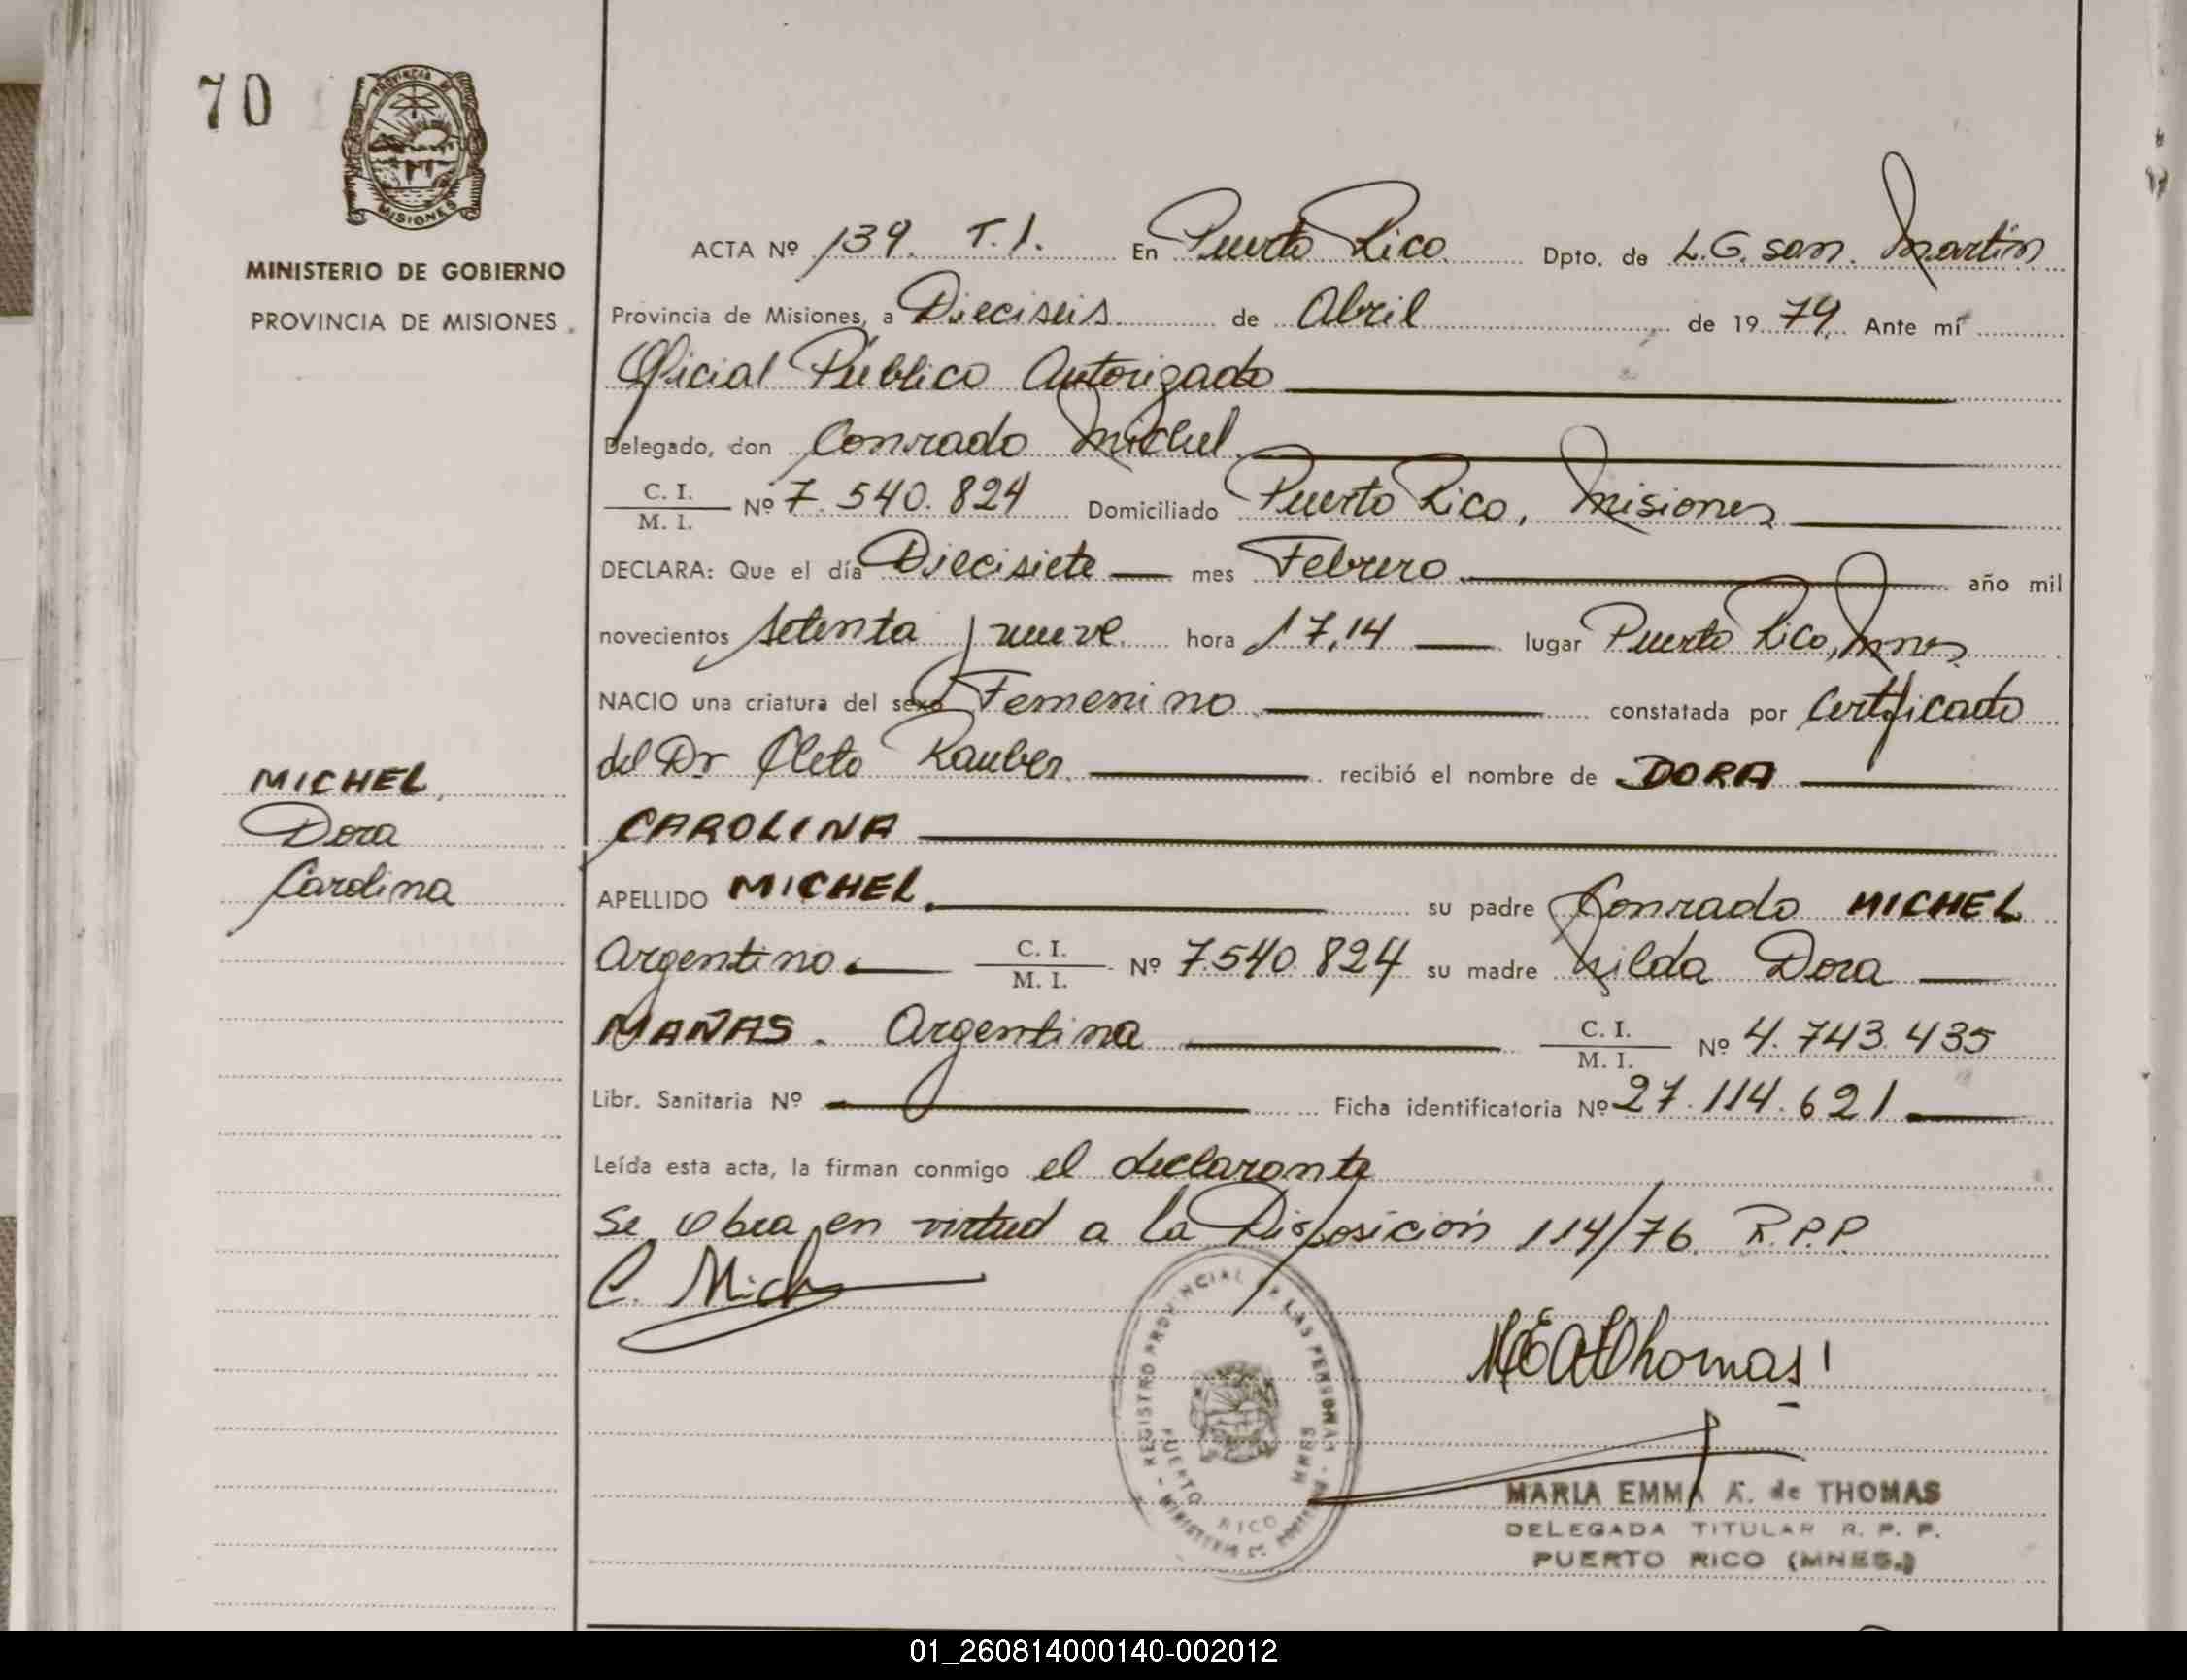 70
PROVINCIA DE
MISIONES
MINISTERIO DE GOBIERNO
PROVINCIA DE MISIONES
ACTA Nº 139. T.1. En Puerto Rico Dpto. de L.G. San. Martín
Provincia de Misiones, a Dieciseis de Abril de 1979. Ante mí
Oficial Público Autorizado
Delegado, don Conrado Michel
C. I. / M. I. Nº 7.540.824 Domiciliado Puerto Rico, Misiones
DECLARA: Que el día Diecisiete mes Febrero año mil
novecientos setenta y nueve hora 17,14 lugar Puerto Rico, Mnes
NACIO una criatura del sexo Femenino constatada por Certificado
del Dr Cleto Rauber recibió el nombre de DORA
CAROLINA
MICHEL,
Dora
Carolina
APELLIDO MICHEL. su padre Conrado MICHEL
Argentino. C. I. / M. I. Nº 7.540.824 su madre Hilda Dora
MAÑAS. Argentina C. I. / M. I. Nº 4.743.435
Libr. Sanitaria Nº Ficha identificatoria Nº 27.114.621
Leída esta acta, la firman conmigo el declarante
Se obra en virtud a la Disposición 114/76 R.P.P
C. Michel
REGISTRO PROVINCIAL DE LAS PERSONAS - MINISTERIO DE GOBIERNO -
PUERTO RICO MNES
MARIA EMMA A. de THOMAS
DELEGADA TITULAR R. P. P.
PUERTO RICO (MNES.)
01_260814000140-002012